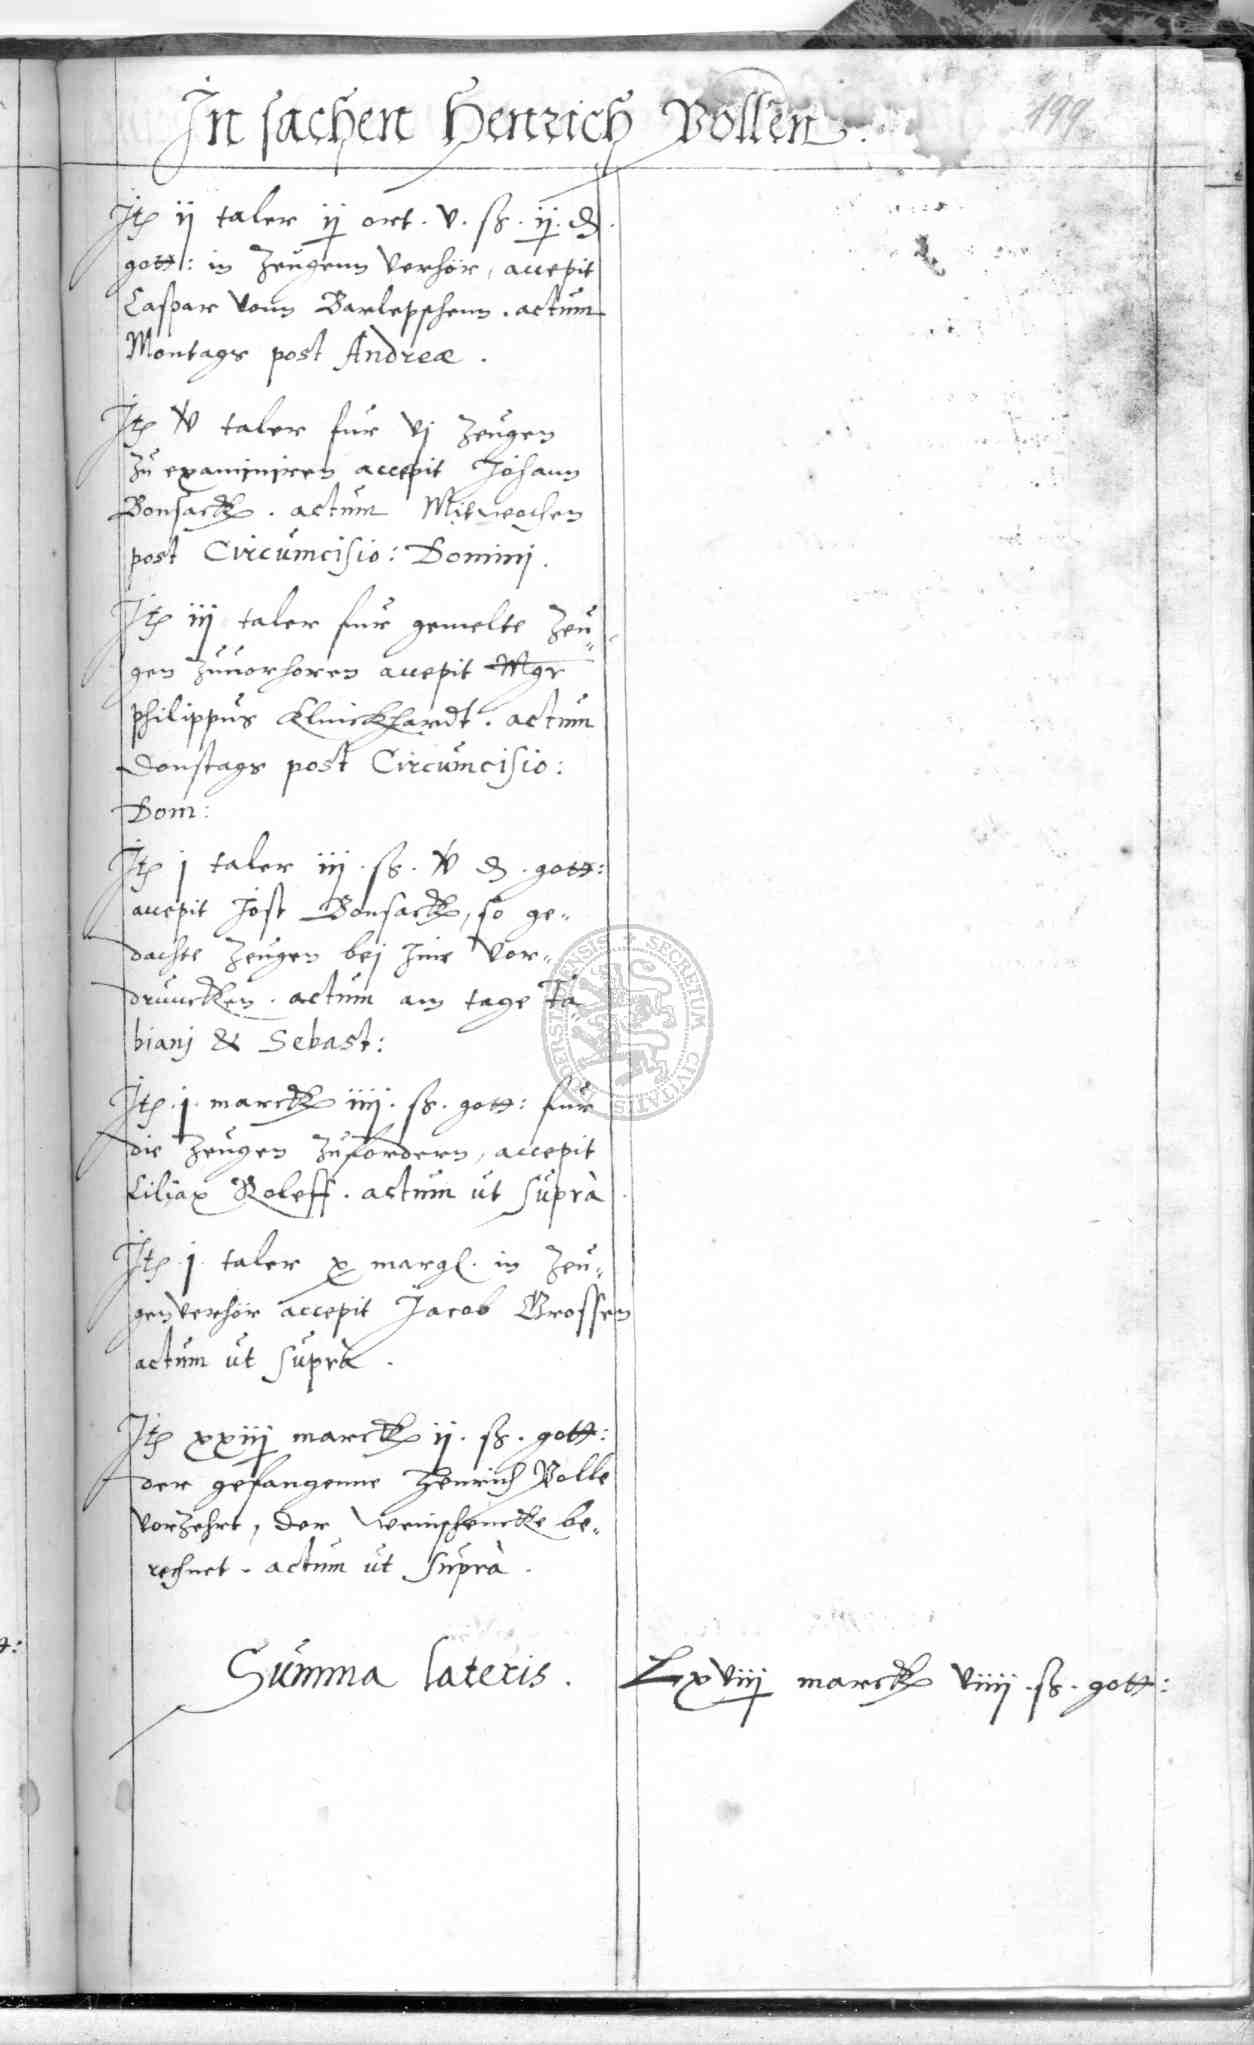 199
In sachen Henrich Bollen.
Itē ii taler ij ort . v . ß . ij . ₰ .
gott: in Zeugenn verhör, accepit
Caspar vonn Barlepschenn . actum
Montags post Andreæ .
Itē v taler fur vj Zeugen
zu examinjren accepit Johann
Bonsack . actum Mitwochen
post Circumcisio: Dominj .
Itē iij taler fur gemelte Zeu„
gen zuuorhoren accepit Mgr
philippus Klinckhardt . actum
Donstags post Circumcisio:
Dom:
Itē j taler iij . ß . v ₰ . gott:
accepit Jost Bonsack, so ge„
dachte Zeugen bej Jme vor„
druncken . actum am tage Fa
bianj & Sebast:
Itē . j . marck iiij . ß . gott: fur
die Zeugen zufordern, accepit
Ciliax Roleff . actum ut suprà
Itē . j . taler x margl . in Zeu„
genverhör accepit Jacob Grossen
actum ut suprà .
Itē xxiij marck ii . ß . gott:
der gefangenne Henrich Bolle
vorzehrt, der weinschencke be„
rechnet . actum ut suprà .
Summa lateris . Lxviij marck viiij . ß . gott:
SECRETUM CIVITATIS